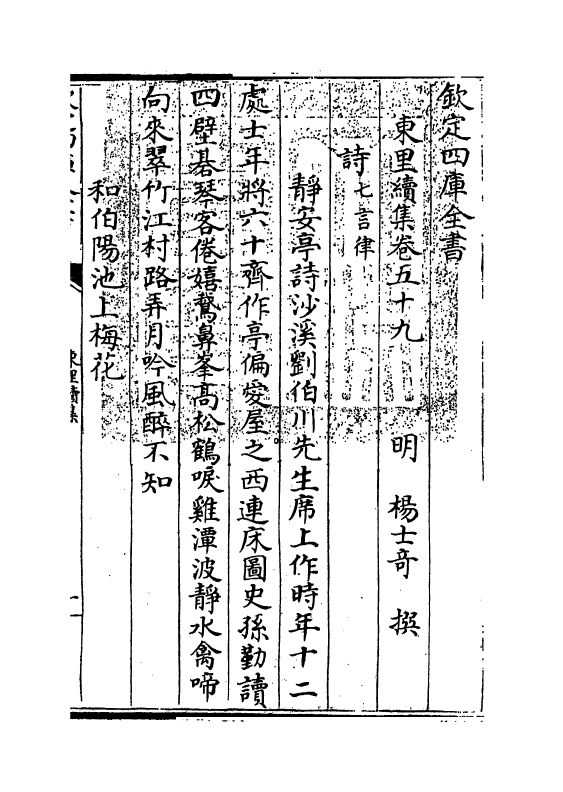 欽定四庫全書
東里續集卷五十九　明　楊士竒　撰
詩七言律
靜安亭詩沙溪劉伯川先生席上作時年十二
處士年將六十齊作亭偏愛屋之西連床圖史孫勤讀
四壁碁琴客倦嬉鵞鼻峯髙松鶴唳雞潭波靜水禽啼
向來翠竹江村路弄月吟風醉不知
和伯陽池上梅花
東里續集